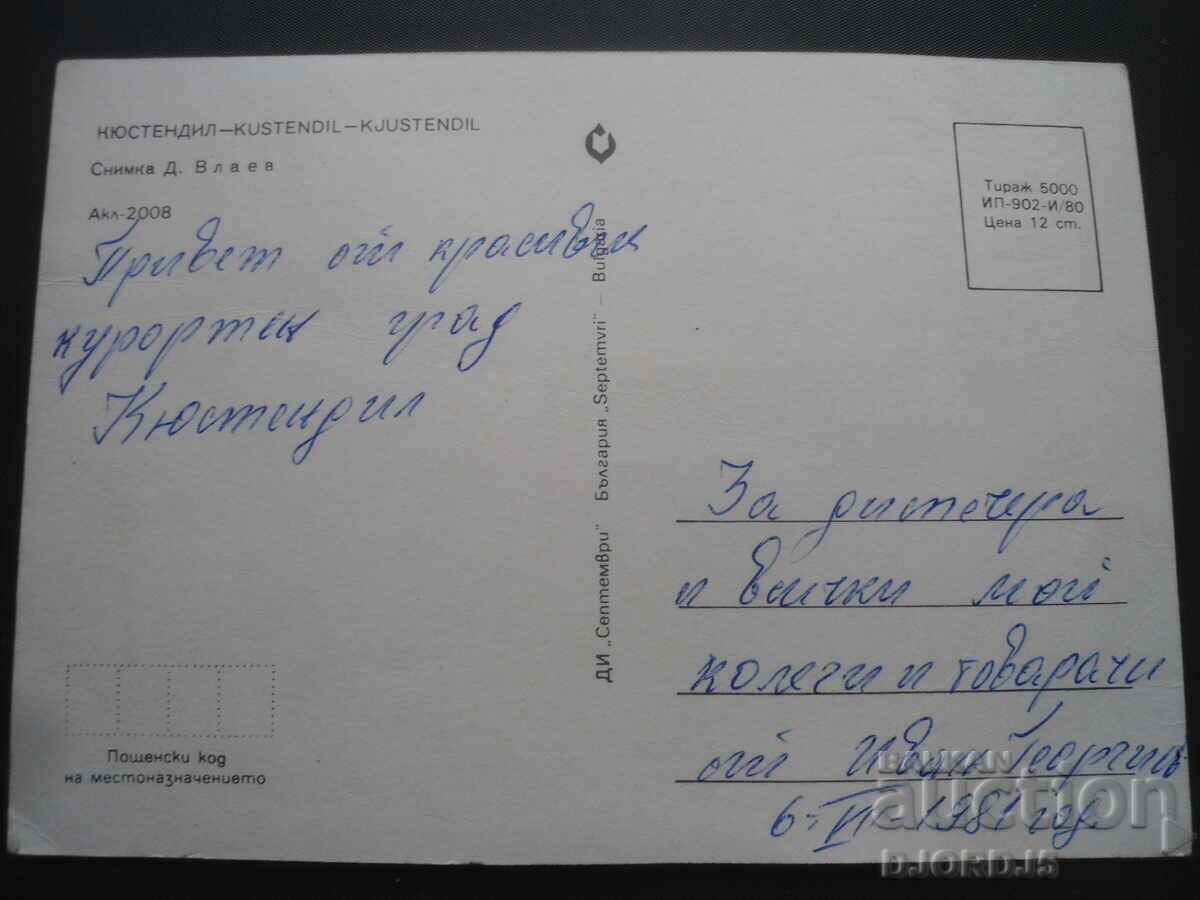 КЮСТЕНДИЛ–KUSTENDIL–KJUSTENDIL
Снимка Д. Влаев
Акл-2008
Привет от красивия
курортен град
Кюстендил
Пощенски код
на местоназначението
ДИ „Септември" България „Septemvri" – Bulgaria
Тираж 5000
ИП-902-И/80
Цена 12 ст.
За диспечера
и всички мои
колеги и товарачи
от Иван Георгиев
1981 год
BALKAN
auction
DJORDJ5